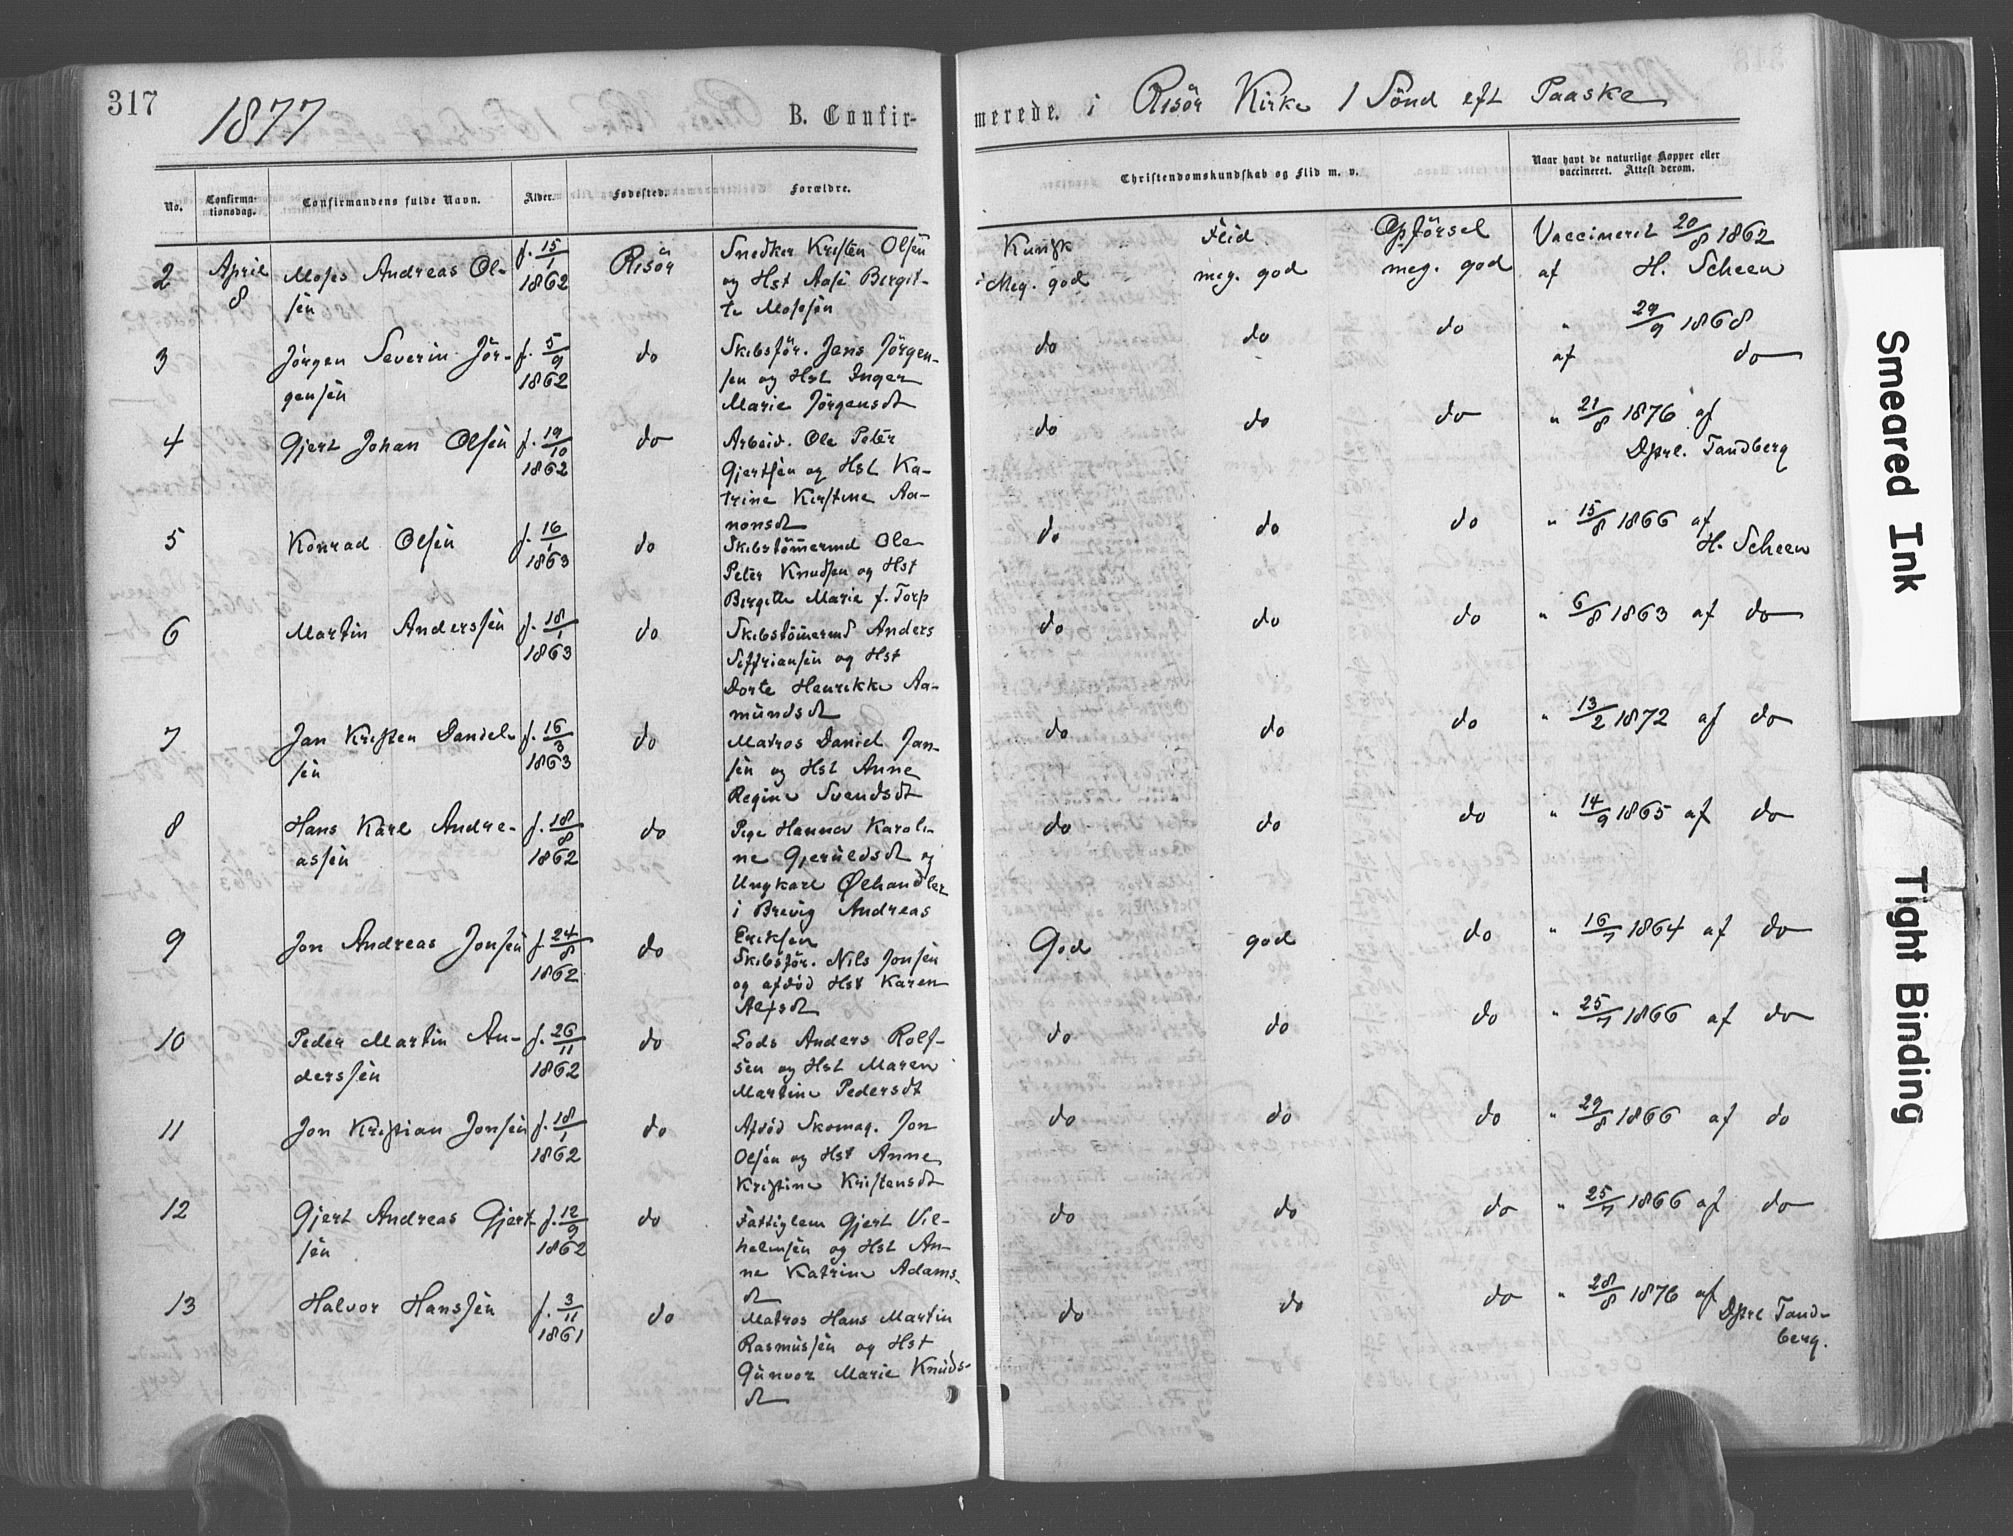 317
1877
B. Confirmerede. i Risör Kirke 1 Sönd eft Paaske
No. Confirmationsdag. Confirmandens fulde Navn. Alder. Fødested. Forældre. Christendomskundskab og Flid m. v. Naar havt de naturlige Kopper eller vaccineret. Attest derom.
Kundsk Flid Opförsel Vaccineret 20/8 1862
2 April 8 Moses Andreas Ol- f. 15/1 1862 Risör Snedker Kristen Olsen i Meg. god meg. god meg. god af H. Scheen
sen og Hst Aase Birgit-
te Mosesen
3 Jörgen Severin Jör- f. 5/9 1862 do Skibsför. Jens Jörgen- do do do " 29/9 1868
gensen sen og Hst Inger af do
Marie Jörgensdt
4 Gjert Johan Olsen f. 19/10 1862 do Arbeid. Ole Peter do do do " 21/8 1876 af
Gjertsen og Hst Ka- Dstrl. Tandberg
trine Kirstine Aa-
nonsdt
5 Konrad Olsen f. 16/1 1863 do Skibstömermd Ole do do do " 15/8 1866 af
Peter Knudsen og Hst H. Scheen
Birgitte Marie f. Torp
6 Martin Anderssen f. 18/1 1863 do Skibstömermd Anders do do do " 6/8 1863 af do
Siffriansen og Hst
Dorte Henrikke Aa-
mundsdt
7 Jan Kristen Daniel- f. 16/3 1863 do Matros Daniel Jan- do do do " 13/2 1872 af do
sen sen og Hst Anne
Regine Svendsdt
8 Hans Karl Andre- f. 18/8 1862 do Pige Hanna Karoli- do do do " 14/9 1865 af do
assen ne Gjeruldsdt og
Ungkarl Ølhandler
i Brevig Andreas
Eriksen
9 Jon Andreas Jonsen f. 24/8 1862 do Skibsför. Nils Jonsen God god do " 16/7 1864 af do
og afdöd Hst Karen
Alfsdt
10 Peder Martin An- f. 26/11 1862 do Lods Anders Rolf- do do do " 25/7 1866 af do
derssen sen og Hst Maren
Martine Pedersdt
11 Jon Kristian Jonsen f. 18/1 1862 do Afdöd Skomag. Jon do do do " 29/8 1866 af do
Olsen og Hst Anne
Kristine Kristensdt
12 Gjert Andreas Gjert f. 12/9 1862 do Fattiglem Gjert Vil- do do do " 25/7 1866 af do
sen helmsen og Hst An-
ne Katrine Adams-
dt
13 Halvor Hanssen f. 3/11 1861 do Matros Hans Martin do do do " 28/8 1876 af
Rasmussen og Hst Dstrl Tand-
Gunvor Marie Knuds- berg.
dt
Smeared Ink
Tight Binding